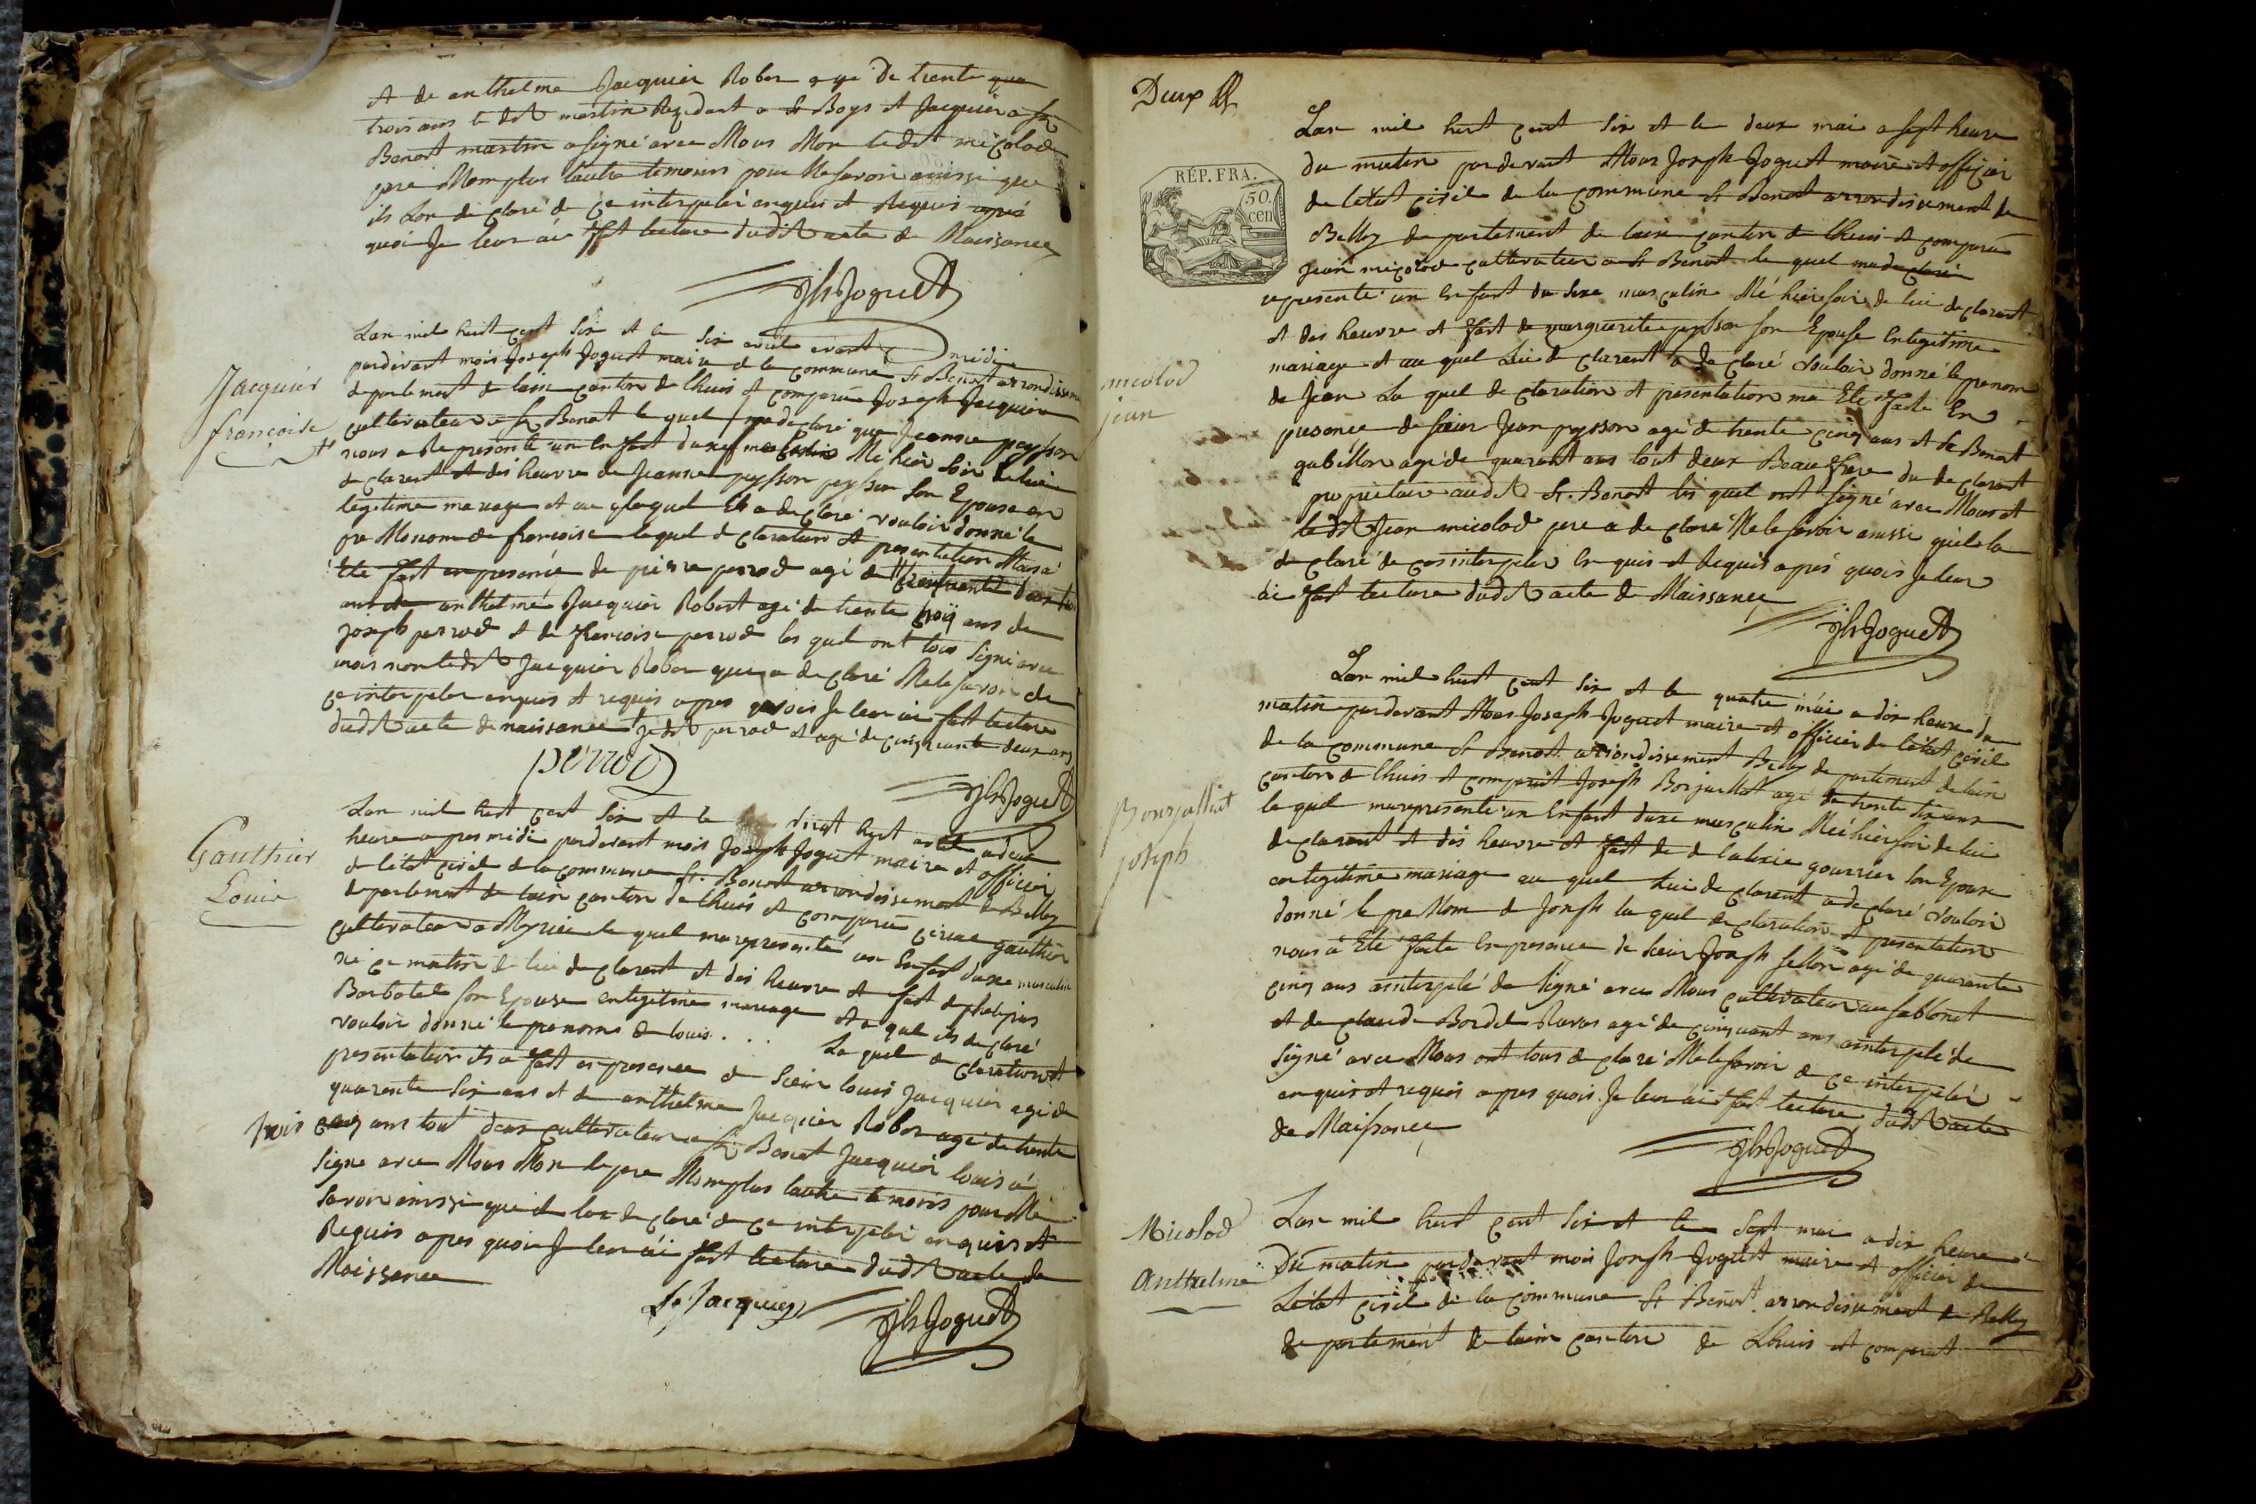 et de anthelme Jacquier Rober agé de trente
trois ans le dit martin Rezidant a St Boys et Jacquier a St
Benoit martin a signé avec Nous Non le dit micolod
pere Nomplus lautre temoins pour Ne savoir ainssi que
ils lon de claré de ce interpelér enquis et Requis aprés
quoi Je leur ai fait lecture dudit acte de Naissance
Jh Joguet
Jacquier
francoise
Lan mil huit cent six et le six avril avant midi
pardevant mois Joseph Joguet maire de la commune St Benoit arrondisseme
departement de lain canton de lhuis et comparu Joseph Jacquier
cultivateur a St Benoit le quel ma declaré que Jeanne peysson
nous a Representé un Enfant du sexe Né hier soir de lui
declarent et dis heurre de Jeanne peysson peysson son Epouse en
legitime mariage et au quel a declaré vouloir donné le
pre Nom de francoise lequel de claration et presentation Nousa
Eté fait en presence de pierre perrod agé de cinquante deux
ans de anthelmé Jacquier Robert agé de trente trois ans de
Joseph perrod et de francoise perrod les quel ont tous signé avec
mois non le dit Jacquier Rober que a de claré Ne le savoir de
ce interpeler enquis et requis apres quois Je leur ai fait lecture
dudit acte de naissance ledit perrod et agé de cinquante deux ans
pérrod
Jh Joguet
Gauthier
Louis
Lan mil huit cent six et le vingt huit avril a deux
heure apres midi pardevant mois Joseph Joguet maire et officier
de létat civil de la commune St. Benoit arrondissement de Belley
departement de lain canton de lhuis et comparu gauthier
cultivateur a Meyrieu le quel ma representé un Enfant du sexe masculin
né ce matin de lui declarent et dis heurre et fait de
Barbotel son Epouse en legitime mariage et a quel ils declaré
vouloir donné le prenom de louis. . . . La quel de claration et
presentation ils a fait en presence de sieur louis Jacquier agé de
quarente six ans et de anthelme Jacquier Rober agé de trente
trois ans tout deux cultivateur a St Benoit Jacquier louis a
signe avec Nous Non le pere Nomplus lautre temoins pour Ne
savoir ainssi que il lon de claré de ce interpelér enquis et
Requis apres quois Je leur ai fait lecture dudit acte de
Naissance
Ls Jacquier
Jh Joguet
Deux
RÉP. FRA.
50.
cen
micolod
jean
Lan mil huit cent six et le deux mai a sept heure
du matin pardevant Nous Joseph Joguet maire et officier
de létat civil de la commune St Benoit arrondissement de
Belley departement de lain canton de lhuis et comparu
Jean micolod cultivateur a St Benoit le quel ma declaré
representé un Enfant du sexe masculin Né hier soir de lui declarent
et dis heurre et fait de marguerite peysson son Epouse En legitime
mariage et au quel Lui declarent a declaré vouloir donné le prenom
de Jean La quel de claration et presentation ma Eté faite En
presence de sieur Jean peysson agé de trente cinq ans et de Benoit
gabillon agé de quarant ans tout deux Beau frere du declarent
propriétaire audit St. Benoit les quel ont signé avec Nous et
ledit Jean micolod pere a de claré Ne le savoir ainssi quil la
de claré de ce interpeler En quis et Requis aprés quois Je leur
ai fait lecture dudit acte de Naissance
Jh Joguet
Bourjalliat
joseph
Lan mil huit cent six et le quatre mai a dix heure du
matin pardevant Nous Joseph Joguet maire et officier de létat civil
de la commune St Benoit arrondissement Belley departement de lain
canton de lhuis et comparut Joseph agé de trente six ans
le quel ma representé un Enfant du sexe masculin Né hier soir de lui
declarent et dis heurre et fait de gourrier son Epouse
en legitime mariage au quel Lui declarent a declaré vouloir
donné le pre Nom de Joseph la quel de claration et presentation
nous a Eté faite En presence de sieur Joseph sellon agé de quarante
cinq ans ainterpelé de signé avec Nous cultivateur au sablonet
et de claude Bordel agé de cinquant ans ainterpelé de
signé avec Nous ont tous de claré Ne le savoir de ce interpelér
en quis et requis apres quois Je leur ai fait lecture dudit acte
de Naissance
Jh Joguet
Micolod
anthelme
Lan mil huit cent six et le sept mai a dix heure
Du matin pardevant mois Joseph Joguet maire et officier de
Létat civil de la commune St Benoit arrondissement de Belley
departement de lain canton de Lhuis et comparut